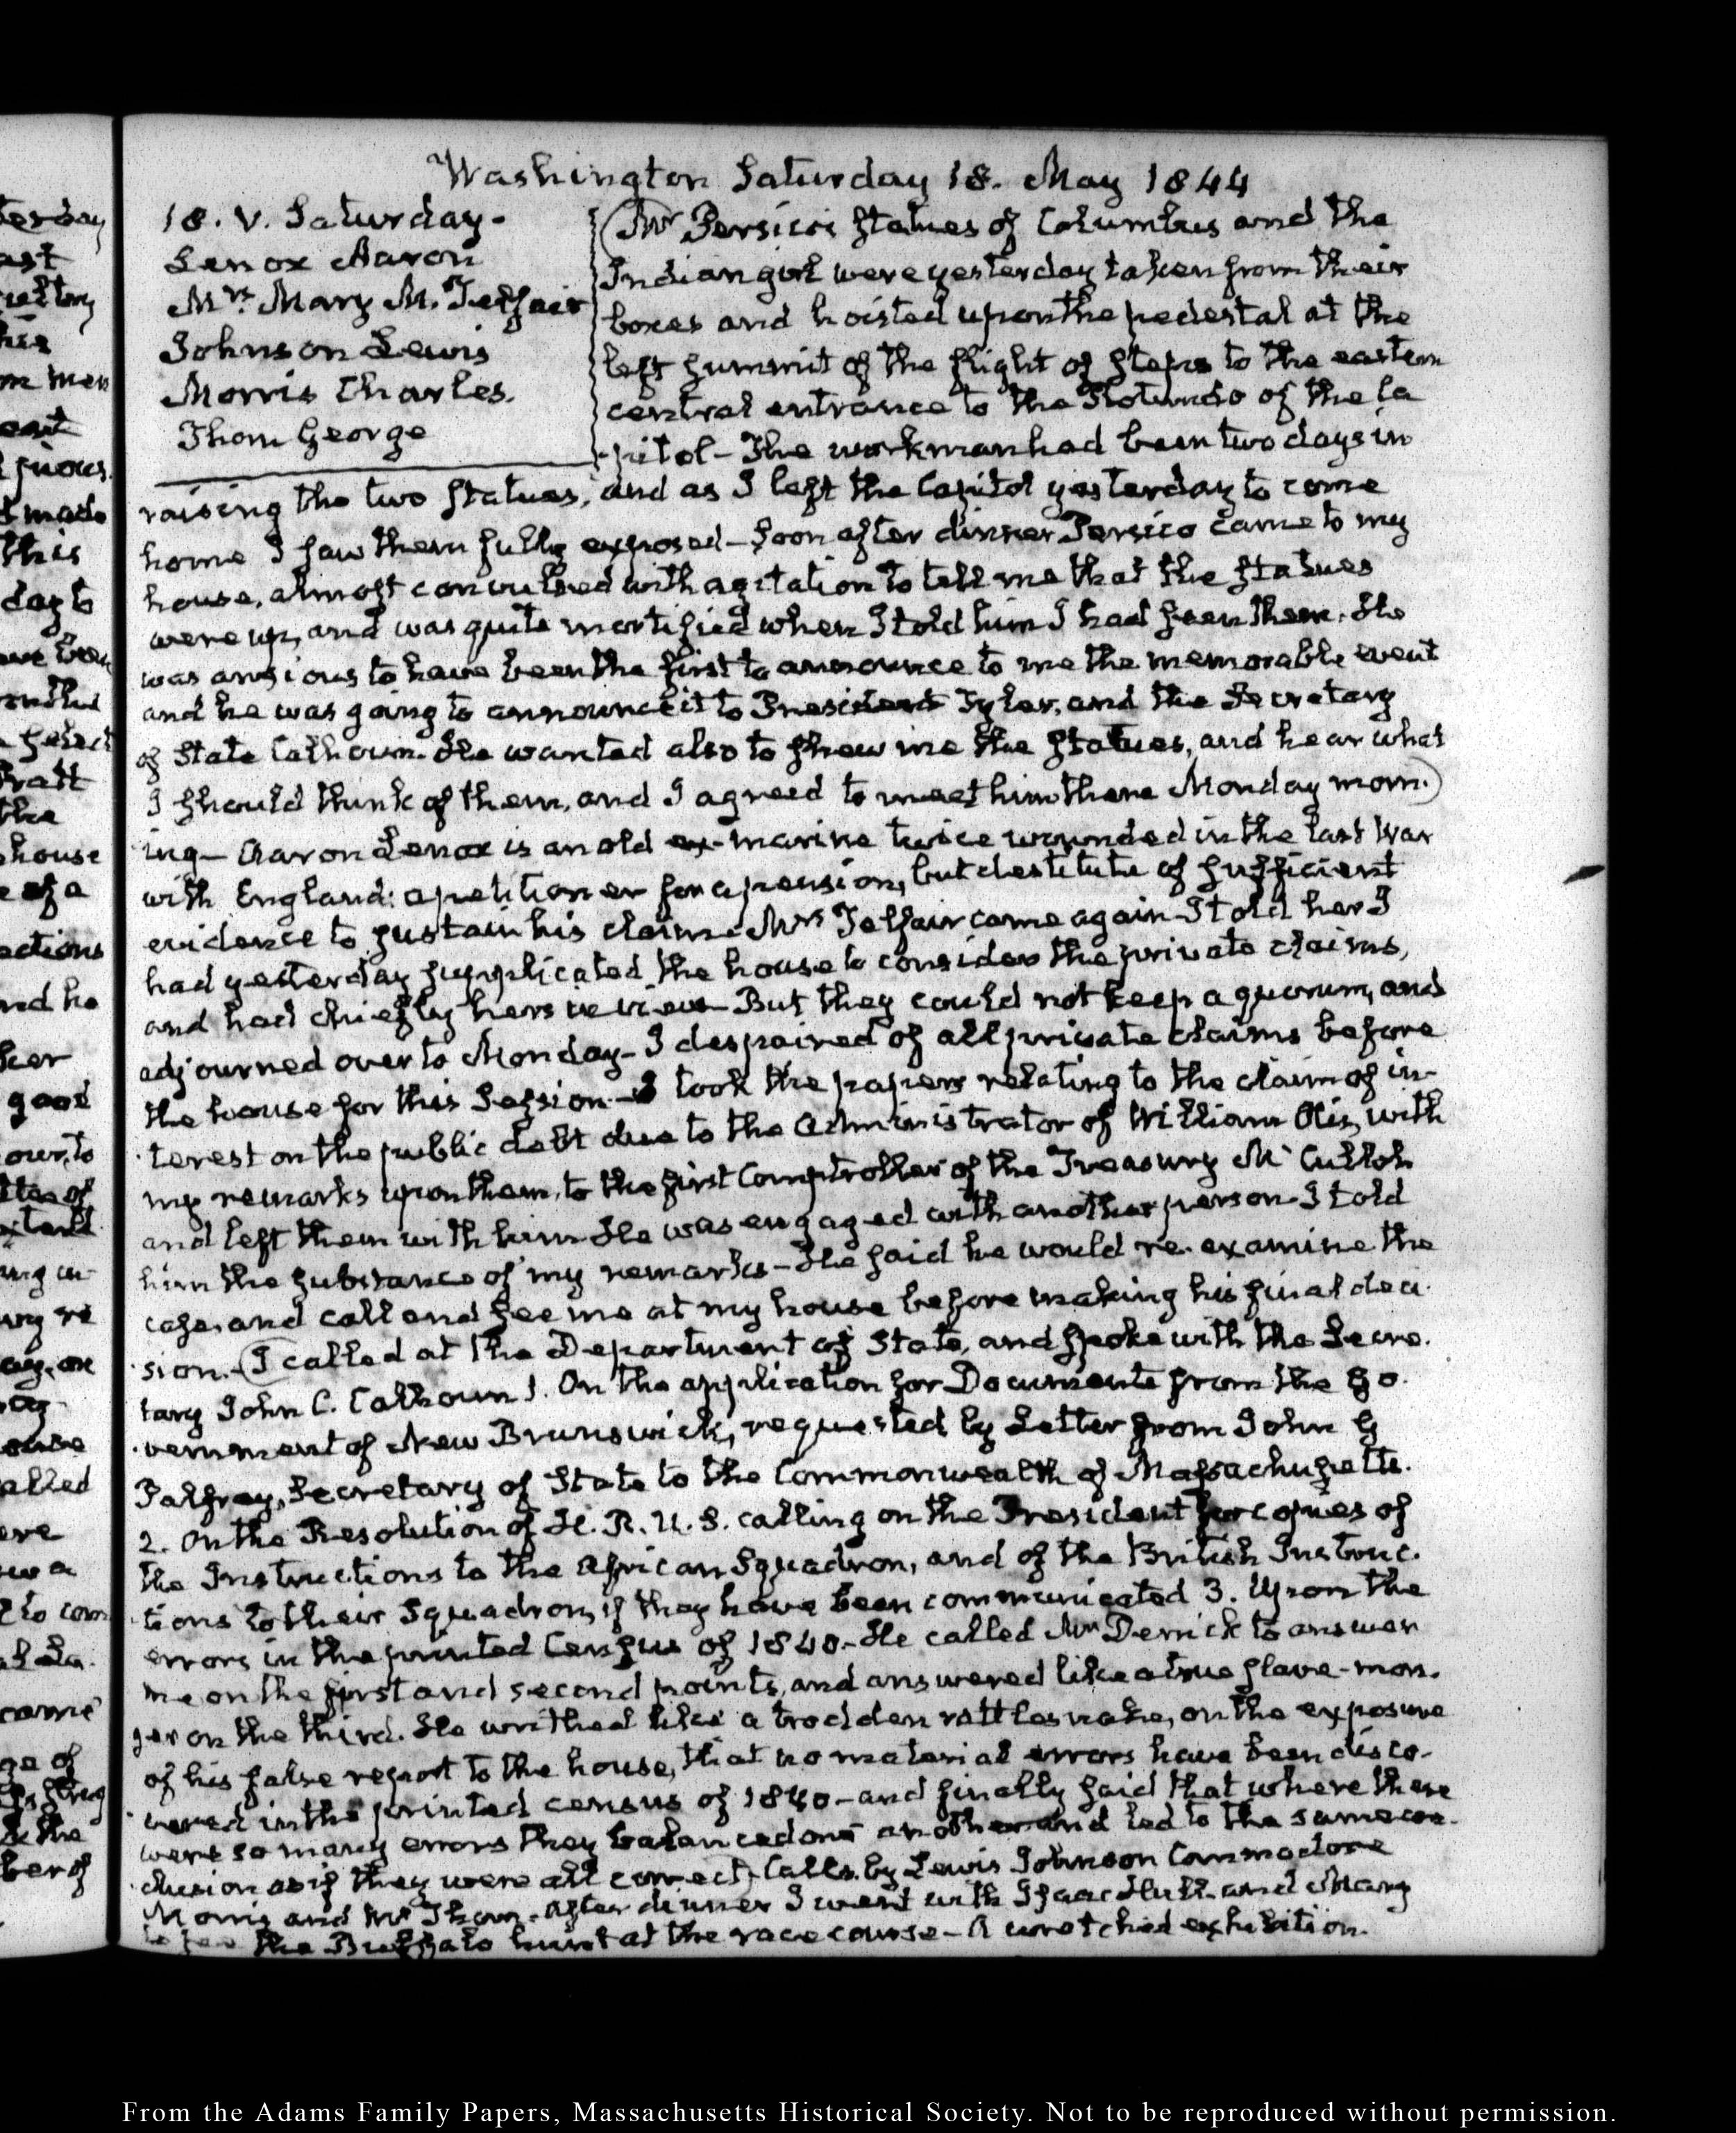 Washington Saturday 18. May 1844
18. V. Saturday-
Lenox Aaron
Mrs. Mary M. Telfair
Johnson Lewis
Morris Charles.
Thom George
Mr Persico's Statues of Columbus and the
Indian girl were yesterday taken from their
boxes and hoisted upon the pedestal at the
left summit of the flight of steps to the eastern
central entrance to the Rotundo of the Ca
-pitol- The workman had been two days in
raising the two Statues, and as I left the Capitol yesterday to come
home I saw them fully exposed- Soon after dinner Persico came to my
house, almost convulsed with agitation to tell me that the Statues
were up, and was quite mortified when I told him I had seen them. He
was anxious to have been the first to announce to me the memorable event
and he was going to announce it to President Tyler, and the Secretary
of State Calhoun. He wanted also to shew me the Statues, and hear what
I should think of them, and I agreed to meet him there Monday morn.)
ing- Aaron Lenox is an old ex-marine twice wounded in the last War
with England: a petitioner for a pension, but destitute of sufficient
evidence to sustain his claim- Mrs Telfair came again- I told her I
had yesterday supplicated the house to consider the private claims,
and had chiefly hers in view- But they could not keep a quorum, and
adjourned over to Monday- I despaired of all private claims before
the house for this Session- I took the papers relating to the claim of in-
terest on the public debt due to the Administrator of William Otis, with
my remarks upon them, to the first Comptroller of the Treasury Mc Culloh
and left them with him- He was engaged with another person- I told
him the substance of my remarks- He said he would re-examine the
case, and call and see me at my house before making his final deci-
sion.- (I called at the Department of State, and spoke with the Secre.
tary John C. Calhoun 1. On the application for Documents from the Go.
vernment of New Brunswick, requested by Letter from John G
Palfrey, Secretary of State to the Commonwealth of Massachusetts.
2. On the Resolution of H. R. U. S. calling on the President for copies of
the Instructions to the African Squadron, and of the British Instruc.
tions to their Squadron, if they have been communicated 3. Upon the
errors in the printed Census of 1840.- He called Mr Derrick to answer
me on the first and second points, and answered like a true slave-mon.
ger on the third. He writhed like a trodden rattlesnake, on the exposure
of his false report to the house, that no material errors have been disco-
vered in the printed census of 1840- and finally said that where there
were so many errors they balanced one another and led to the same con-
clusion as if they were all correct- Calls by Lewis Johnson Commodore
Morris and Mr Thom. After dinner I went with Isaac Hull and Mary
to see the Buffalo hunt at the race course- A wretched exhibition.
From the Adams Family Papers, Massachusetts Historical Society. Not to be reproduced without permission.